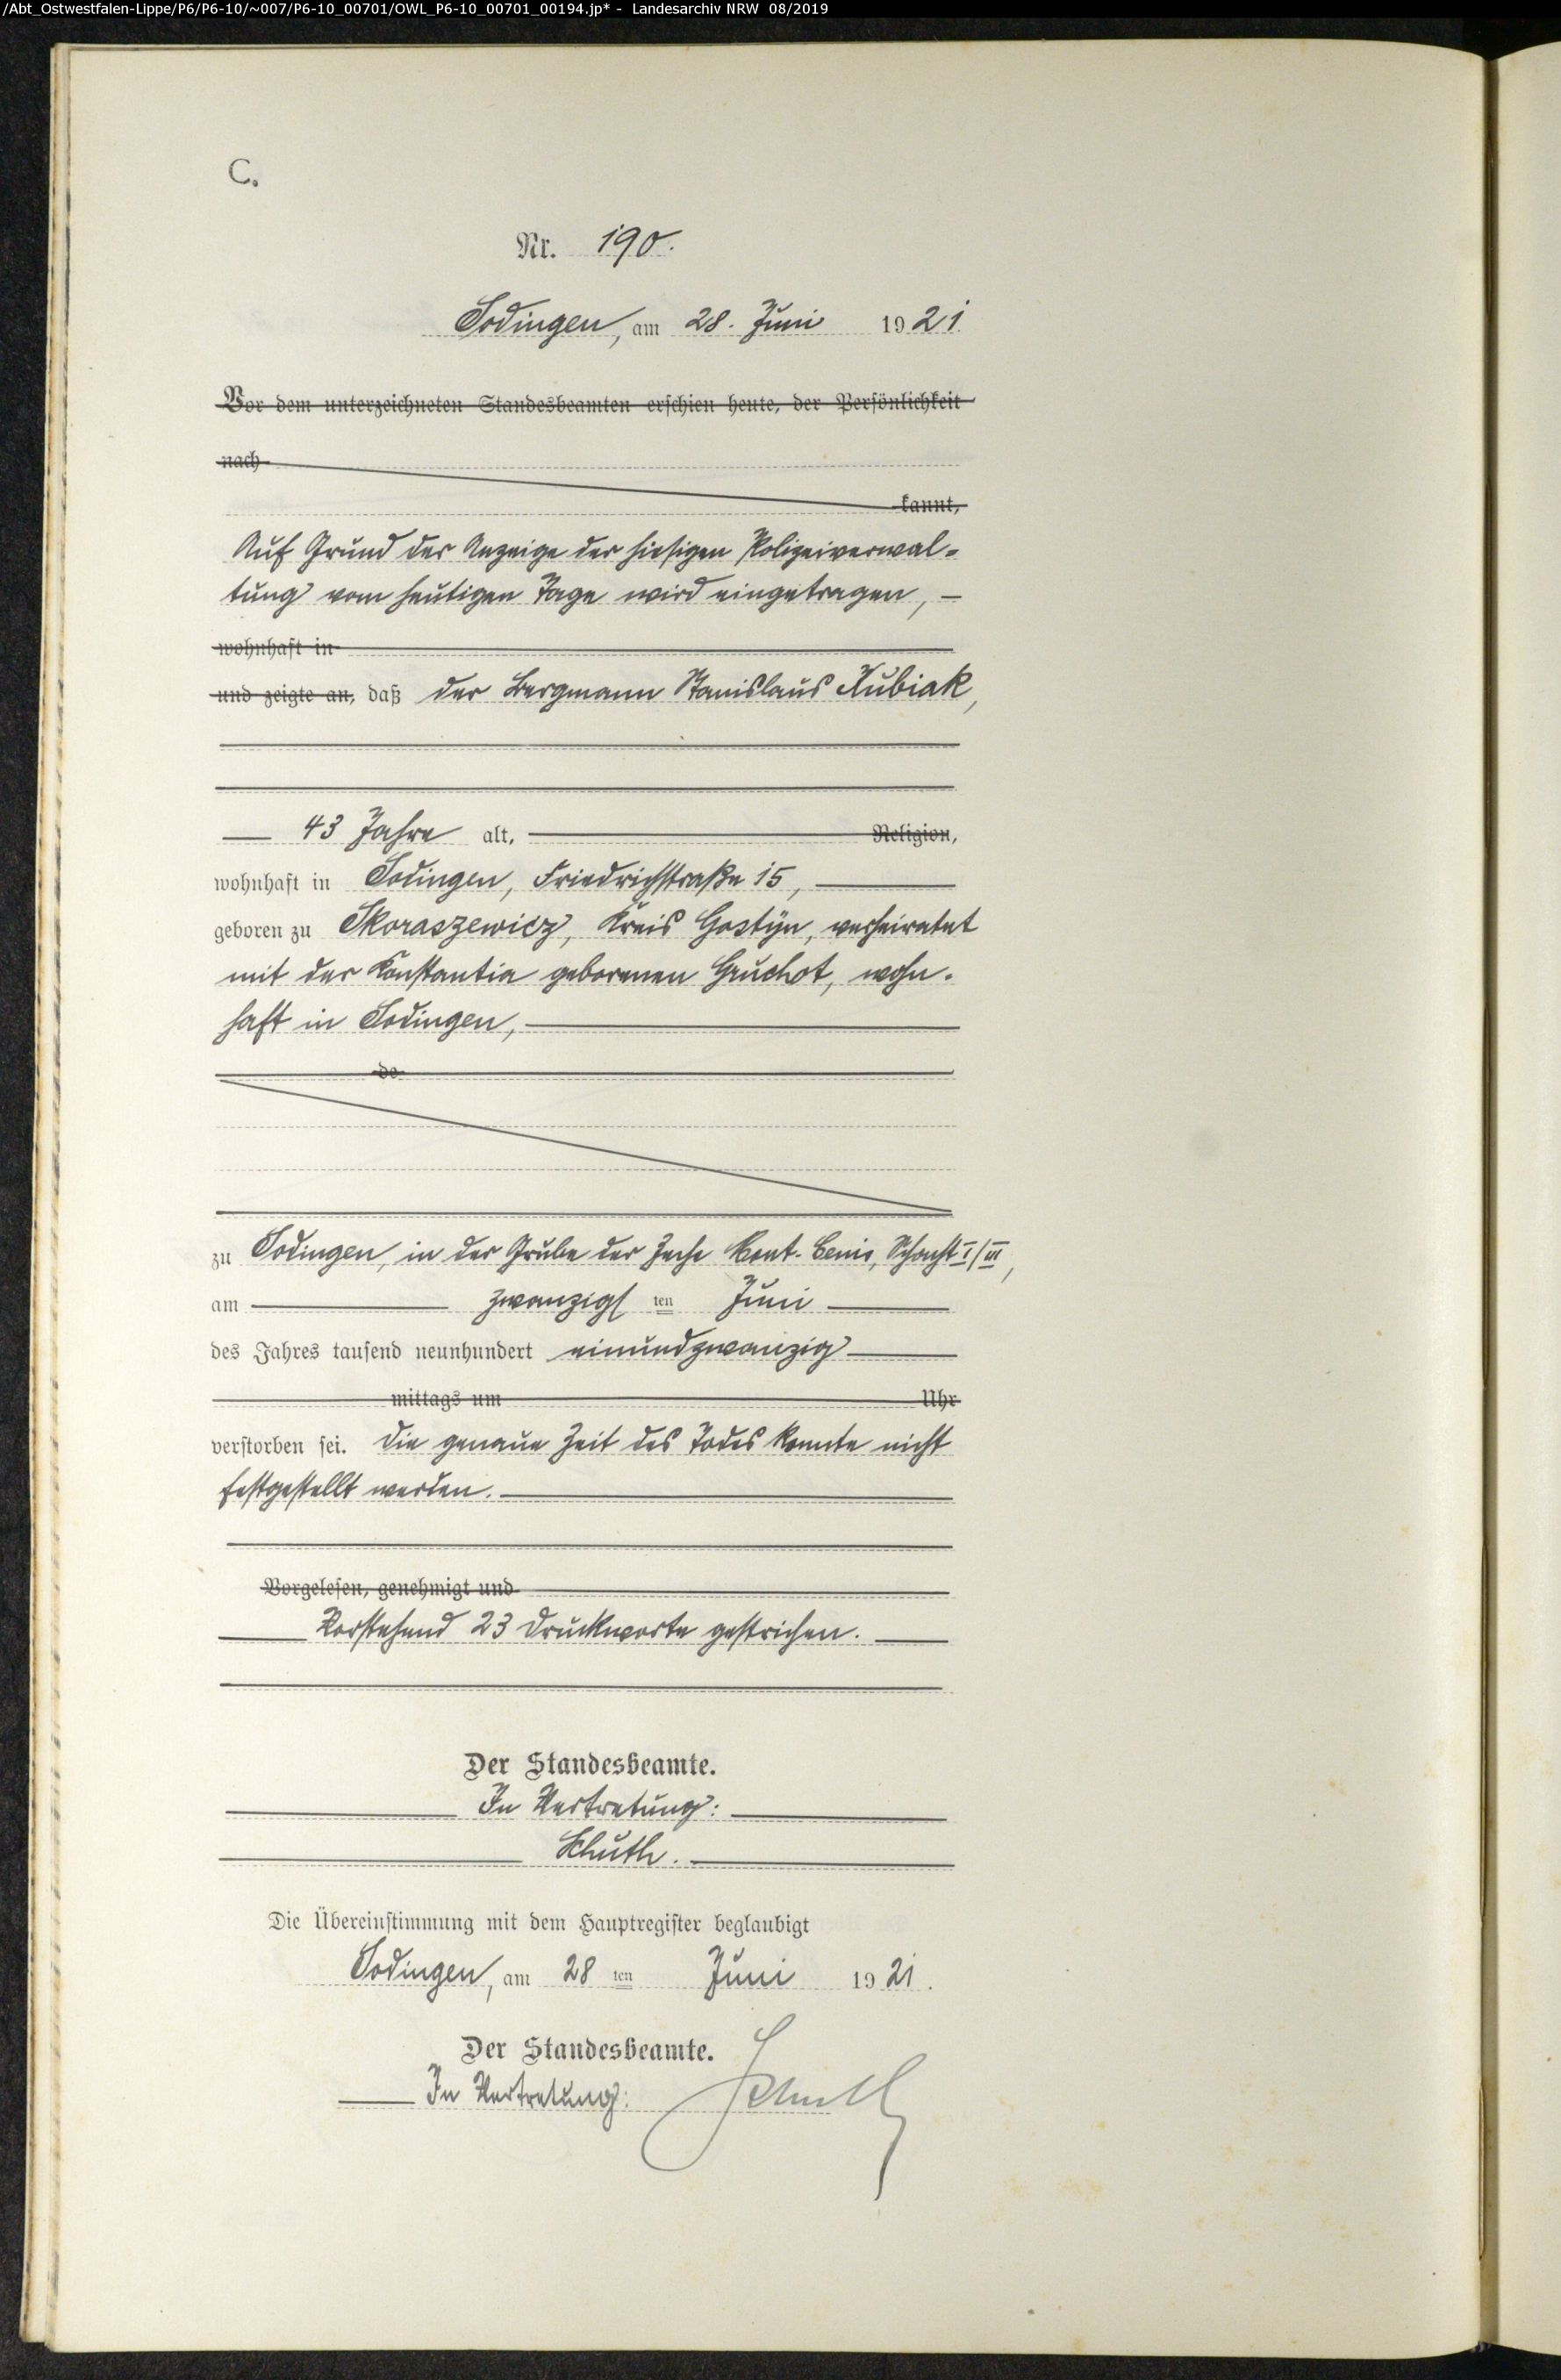 /Abt_Ostwestfalen-Lippe/P6/P6-10/~007/P6-10_00701/OWL_P6-10_00701_00194.jp* - Landesarchiv NRW 08/2019
C.
Nr. 190.
Sodingen, am 28. Juni 1921
Vor dem unterzeichneten Standesbeamten erschien heute, der Persönlichkeit
nach
kannt,
Auf Grund der Anzeige der hiesigen Polizeiverwal-
tung vom heutigen Tage wird eingetragen, —
wohnhaft in
und zeigte an, daß der Bergmann Stanislaus Kubiak,
43 Jahre alt, Religion,
wohnhaft in Sodingen, Friedrichstraße 15,
geboren zu Skoraszewicz, Kreis Gostyn, verheiratet
mit der Konstantia geborenen Gruchot, wohn-
haft in Sodingen,
de
zu Sodingen, in der Grube der Zeche Mont-Cenis, Schacht I/III,
am zwanzigsten Juni
des Jahres tausend neunhundert einundzwanzig
mittags um Uhr
verstorben sei. Die genaue Zeit des Todes konnte nicht
festgestellt werden.
Vorgelesen, genehmigt und
Vorstehend 23 Druckworte gestrichen.
Der Standesbeamte.
In Vertretung:
Schuth.
Die Übereinstimmung mit dem Hauptregister beglaubigt
Sodingen, am 28 ten Juni 1921.
Der Standesbeamte.
In Vertretung: Schuth